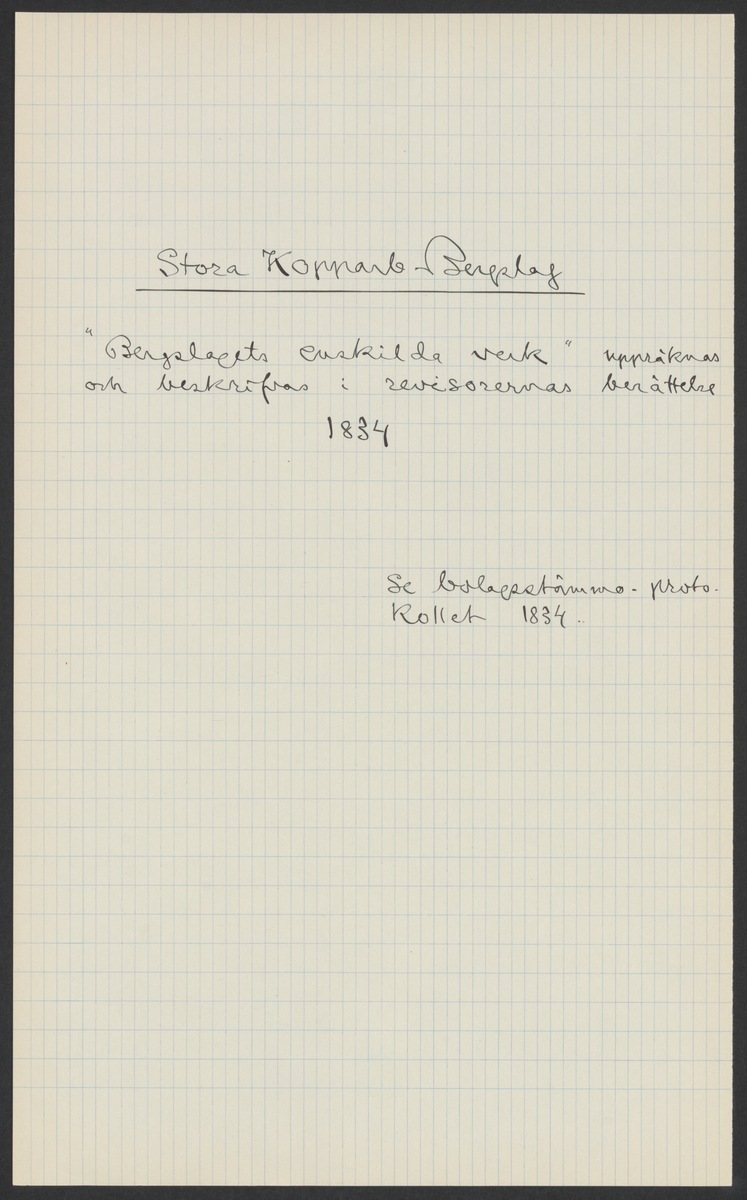 Stora Kopparb-Bergslag
"Bergslagets enskilda verk" uppräknas
och beskrifvas i revisorernas berättelse
1834
Se bolagsstämmo-proto-
kollet 1834.